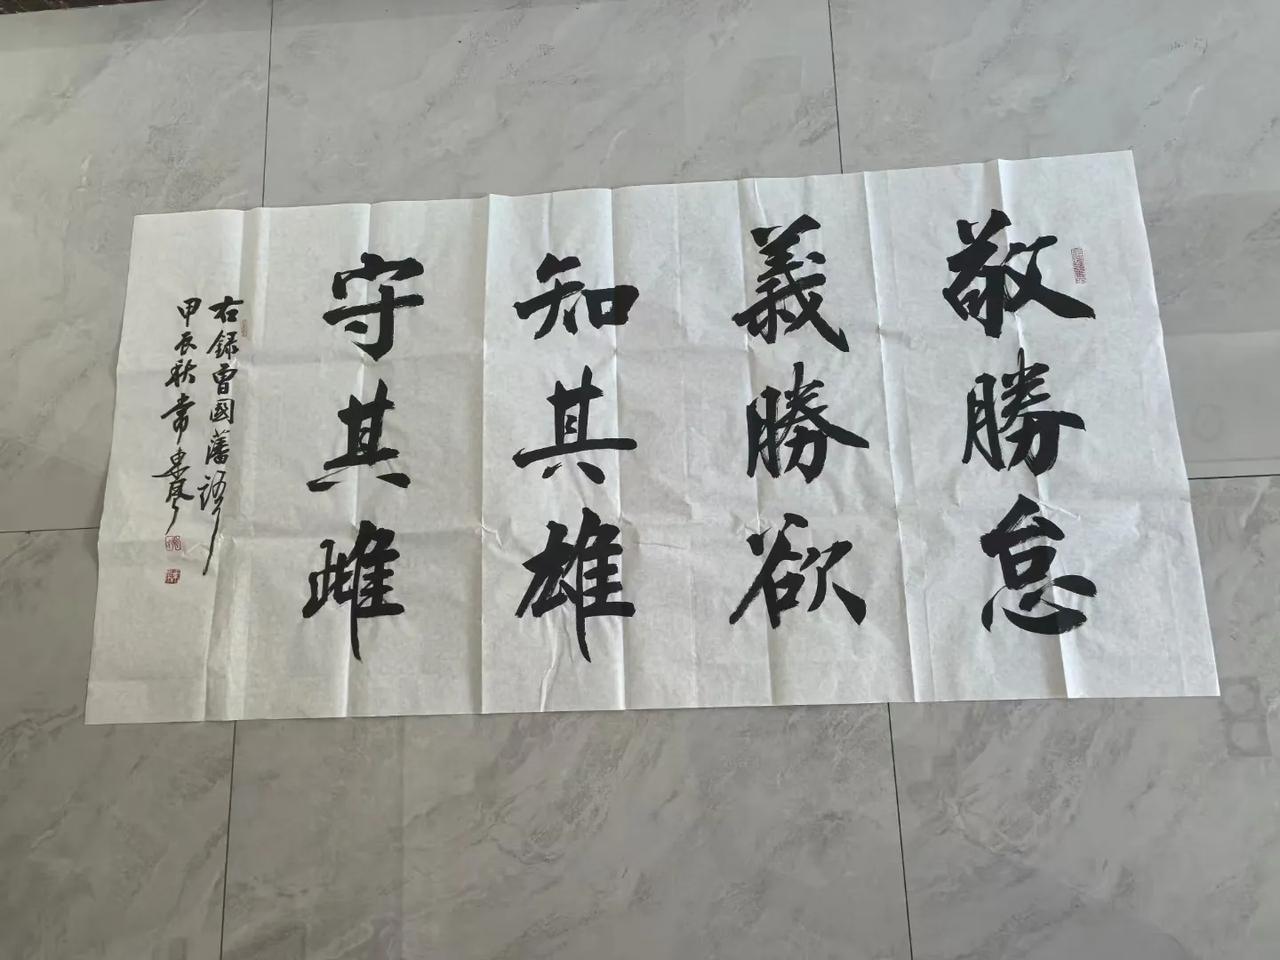 敬勝怠
義勝欲
知其雄
守其雌
右録曾國藩語
甲辰秋常